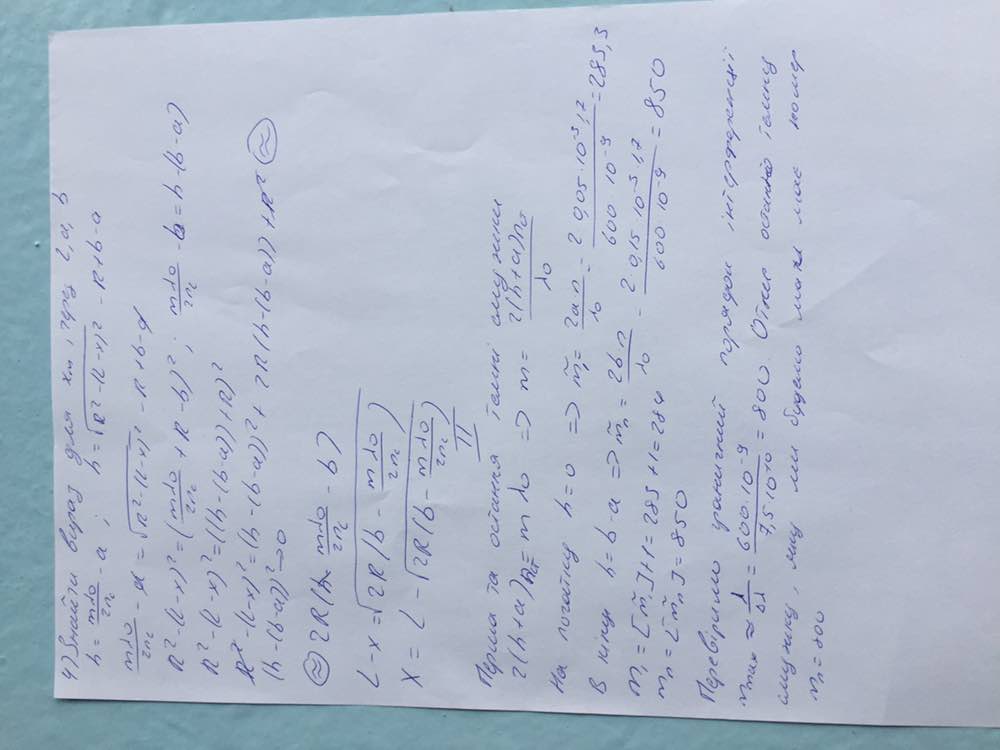 4) Знайти вираз для xm, через l, a, b
h = mλ0/2nc - a ; h = √(R² - (L-x)²) - R + b - a
mλ0/2nc - a = √(R² - (L-x)²) - R + b - a
R² - (L-x)² = (mλ0/2nc + R - b)² ; mλ0/2nc - b = h - (b-a)
R² - (L-x)² = ((h - (b-a)) + R)²
R² - (L-x)² = (h - (b-a))² + 2R(h - (b-a)) + R² ≈
(h - (b-a))² → 0
≈ 2R(b - mλ0/2nc - b)
L - x = √(2R(b - mλ0/2nc))
X = L - √(2R(b - mλ0/2nc))
Перша та остання темні смужки
2(h+a)nσ = mλ0 => m = 2(h+a)nσ/λ0
На початку h=0 => m̃1 = 2an/λ0 = 2·0,05·10⁻³·1,7/600·10⁻⁹ = 283,3
В кінці h = b-a => m̃n = 2bn/λ0 = 2·0,15·10⁻³·1,7/600·10⁻⁹ = 850
m1 = [m̃1] + 1 = 283 + 1 = 284
mn = [m̃n] = 850
Перевіримо граничний порядок інтерференції
mmax ≈ λ/Δλ = 600·10⁻⁹/7,5·10⁻¹⁰ = 800. Отже остання темну
смужку, яку ми будемо мати має номер
mn = 800